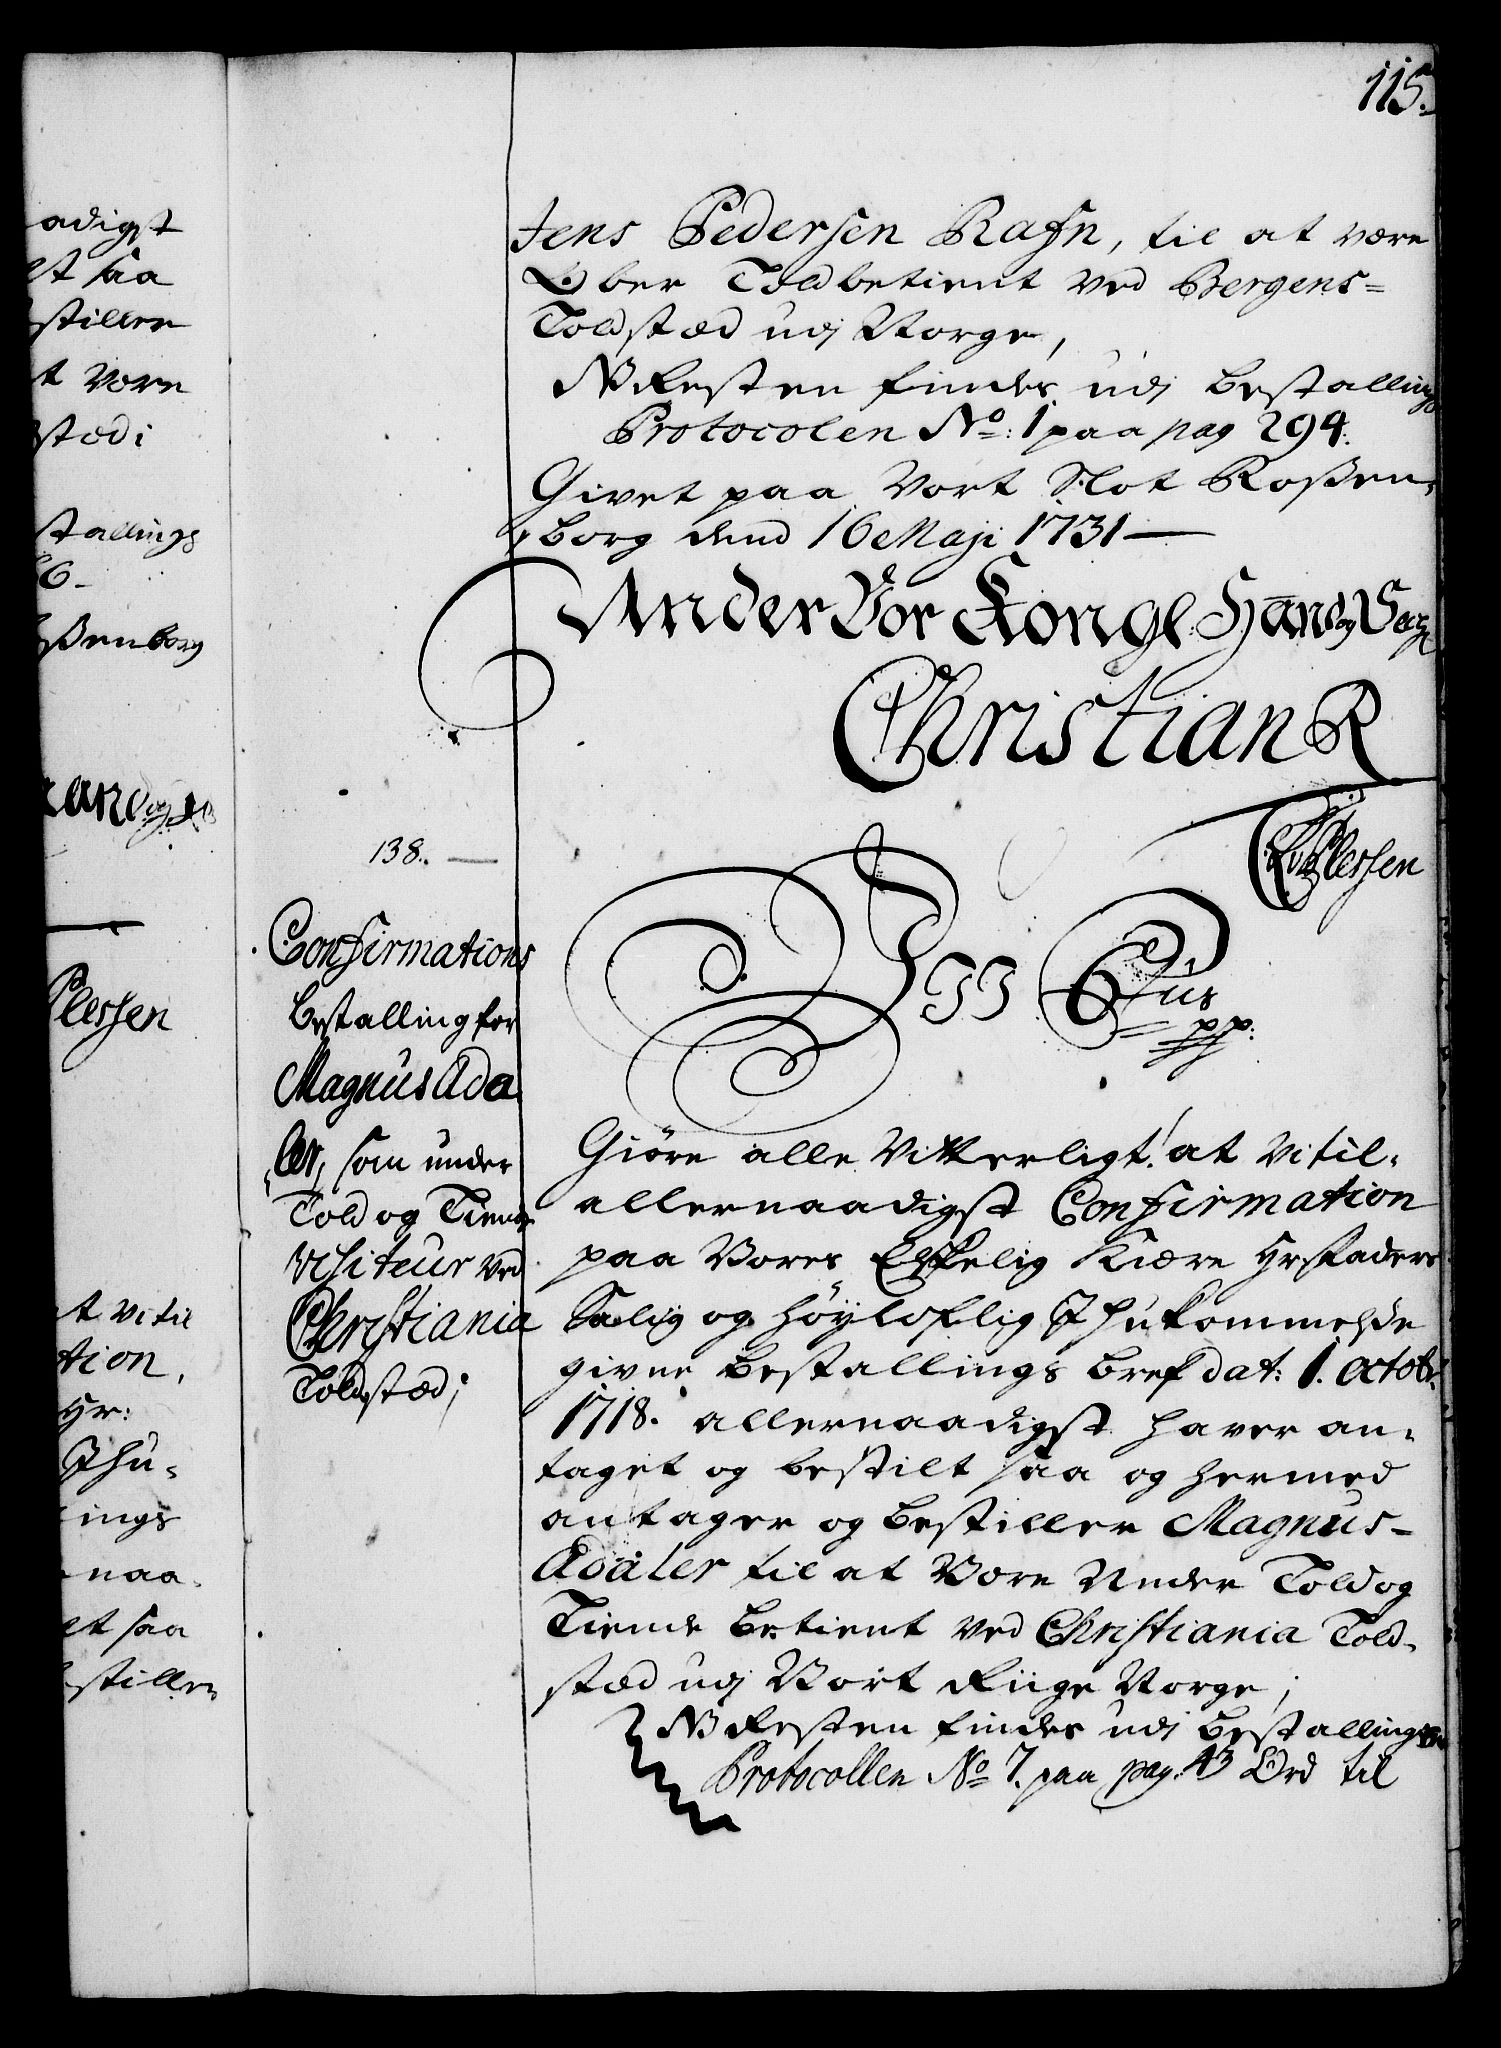 115.
adigst
et saa
stiller
t Vorn
stædi
stallings
86-
ossenborg
Haand og
Plessen
et Vi til
tion,
Hr:
Ihu-
ings
naa-
et saa
stiller
Jens Pedersen Rafn, til at være
Ober Toldbetient ved Bergens=
Toldstæd udj Norge,
NB Resten findes udj bestallings
Protocolen No: 1 paa pag 294.
Givet paa Vort Slot Rossen-
borg dend 16 Maji 1731—
Under Vor Kongl. Haand og Seigl
Christian R
CAvPlessen
138. —
Confirmations
bestalling for
Magnus Ada
ler, som under
Told og Tiende
Visiteur ved
Christiania
Toldstæd;
Vi C 6tus
pp:
Giøre alle Vitterligt! at Vi til-
allernaadigst Confirmation
paa Vores Elskelig Kiære Hr Faders
Salig og Høyloflig Ihukommelse
givne bestallings bref dat: 1. octobr
1718. allernaadigst haver an-
taget og bestilt saa og hermed
antager og bestiller Magnus-
Adaler til at Være Under Told og
Tiende betient ved Christiania Told-
stæd udj Vort Riige Norge;
NB Resten findes udj bestallings
Protocollen No 7. paa pag. 43 Ord til